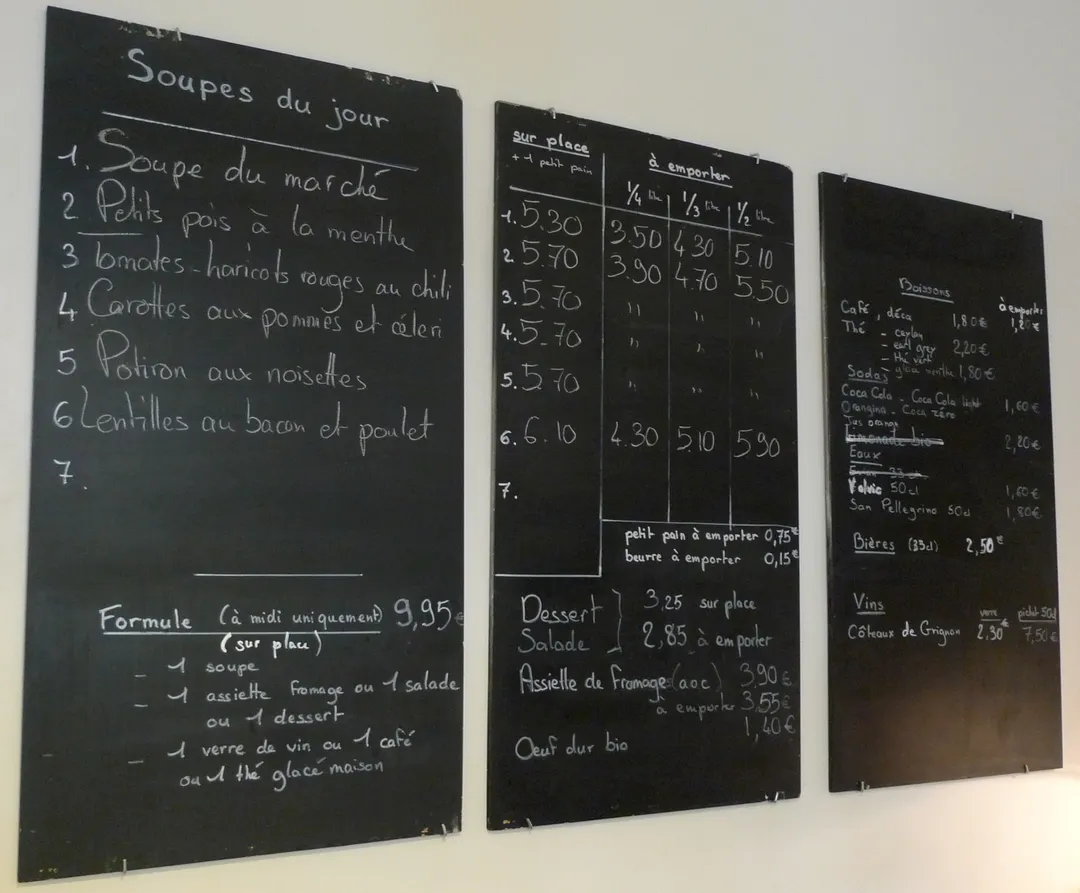 Soupes du jour
1. Soupe du marché
2 Petits pois à la menthe
3 Tomates-haricots rouges au chili
4 Carottes aux pommes et céleri
5 Potiron aux noisettes
6 Lentilles au bacon et poulet
7.
Formule (à midi uniquement) 9,95€
(sur place)
- 1 soupe
- 1 assiette fromage ou 1 salade
ou 1 dessert
- 1 verre de vin ou 1 café
ou 1 thé glacé maison
sur place
+ 1 petit pain
à emporter
1/4 litre 1/3 litre 1/2 litre
1. 5.30 3.50 4.30 5.10
2. 5.70 3.90 4.70 5.50
3. 5.70 " " "
4. 5.70 " " "
5. 5.70 " " "
6. 6.10 4.30 5.10 5.90
7.
petit pain à emporter 0,75€
beurre à emporter 0,15€
Dessert } 3,25 sur place
Salade } 2,85 à emporter
Assiette de fromages (aoc) 3.90€
à emporter 3.55€
1,40€
Oeuf dur bio
Boissons
à emporter
Café, déca 1,80€ 1,20€
Thé - ceylan
- earl grey 2,20€
- thé vert
glacé menthe 1,80€
Sodas
Coca Cola - Coca Cola light 1,60€
Orangina - Coca zéro
Jus orange
Limonade bio 2,20€
Eaux
Evian 33 cl
Volvic 50cl 1,60€
San Pellegrino 50cl 1,80€
Bières (33cl) 2,50€
Vins
verre pichet 50cl
Côteaux de Grignan 2.30€ 7,50€